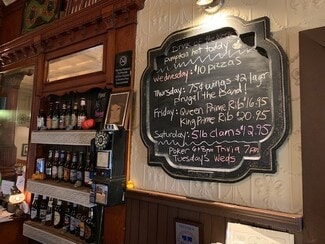 pumpkin hot toddy
Wednesday: $10 pizzas
Thursday: 75¢ wings $2 lagr
frugal the Band!
Friday: Queen Prime Rib $16.95
King Prime Rib $20.95
Saturday: 5lb clams $12.95
Poker 4+8pm Trivia 7pm
Tuesdays Weds